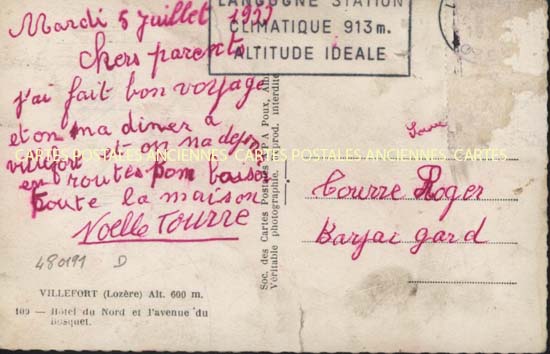 Mardi 5 juillet
LANGOGNE STATION
CLIMATIQUE 913 m.
ALTITUDE IDEALE
chers parents
j'ai fait bon voyage
et on ma diner à
villefort et on na
routes bon
toute la maison
Noelle TOURRE
CARTES POSTALES ANCIENNES CARTES POSTALES ANCIENNES CARTES
Tourre Roger
Barjac gard
480191 D
VILLEFORT (Lozère) Alt. 600 m.
109 — Hôtel du Nord et l'avenue du
Bosquet.
Soc. des Cartes Postales
Véritable photographie.